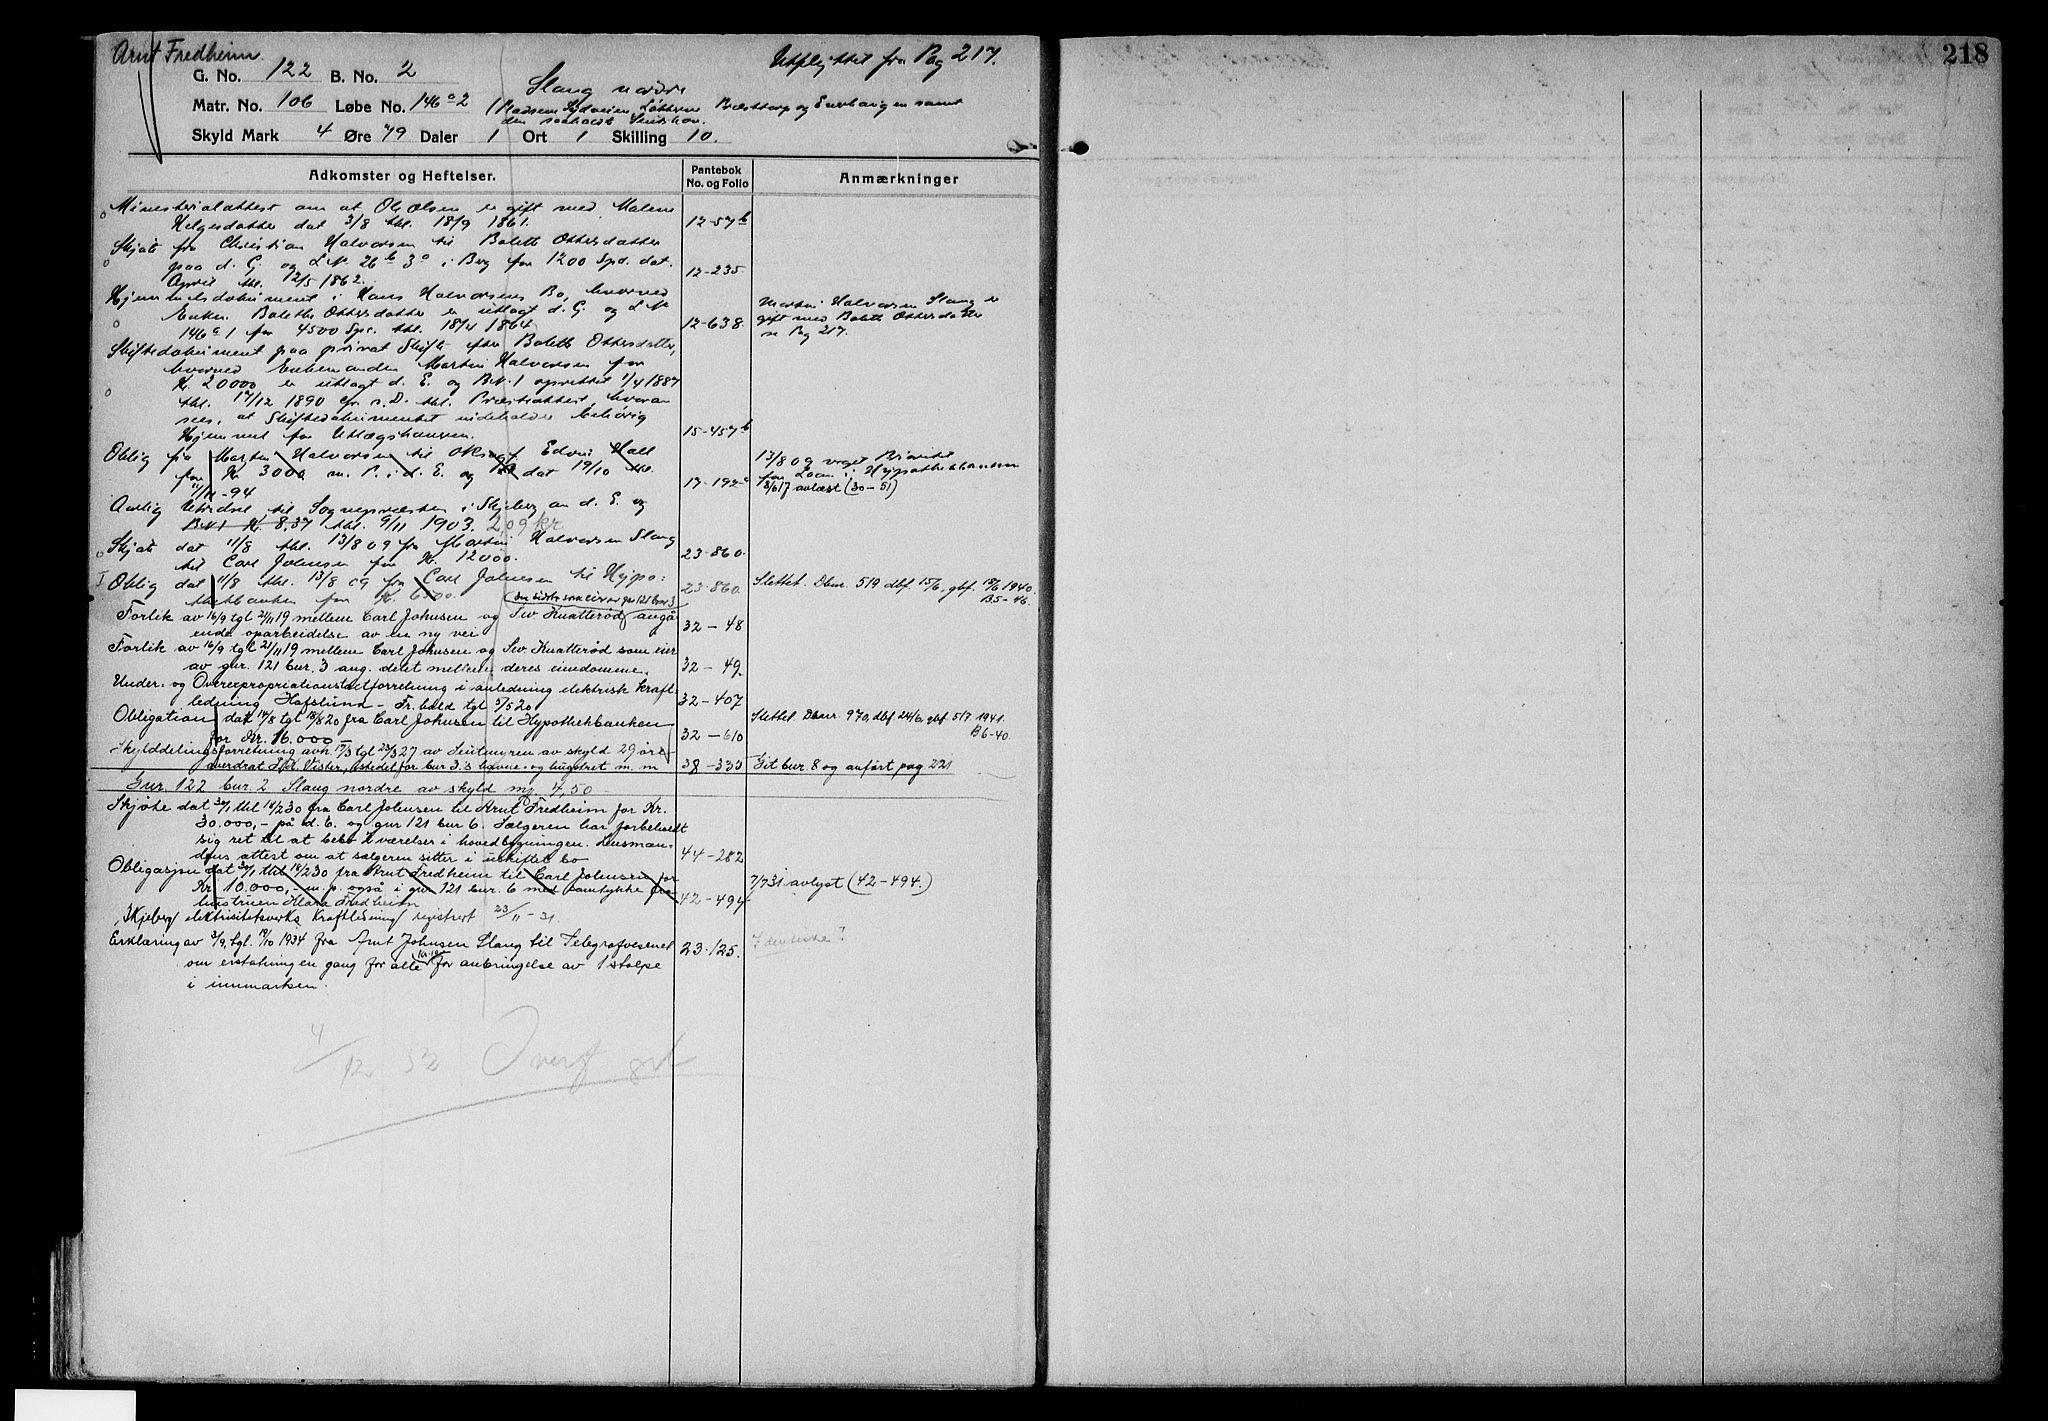 Arnt Fredheim
Utflyttet fra Pag 217.
218
G. No. 122 B. No. 2
Slang nordre
Matr. No. 106 Løbe No. 146 a 2
Skyld Mark 4 Øre 79 Daler 1 Ort 1 Skilling 10.
Adkomster og Heftelser.
Pantebok No. og Folio
Anmærkninger
Ministerialattest om at Ole Olsen er gift med Malene
Helgesdatter dat 3/8 thl. 18/9 1861. 12-57 b
Skjøte fra Christian Halvorsen til Bolette Ottersdatter
paa d. G. og L.N. 26 b 3 a i Berg for 1200 Spd. dat. 12-235
April thl. 12/5 1862.
Hjemmelsdokument i Hans Halvorsens Bo, hvorved
Enken Bolette Ottersdatter er utlagt d. G. og L.N.
146 a 1 for 4500 Spd. thl. 18/4 1864 12-638.
Martin Halvorsen Slang er
gift med Bolette Ottersdatter
se Pag 217.
Skiftedokument paa privat Skifte efter Bolette Ottersdatter,
hvorved Enkemanden Martin Halvorsen for
Kr. 20000 er utlagt d. E. og B.N. 1 oprettet 1/4 1887
thl. 17/12 1890 cfr. s. D. thl. Præsteattest, hvorav
sees, at Skiftedokumentet indeholder behørig
Hjemmel for Utlægshaveren. 15-457 b
Oblig fra Martin Halvorsen til Oksagf. Edvin Hall
for Kr 3000 m. P. i d. E. og dat 19/10 thl.
11/11-94 17-192 a
13/8 09 veget Prioritet
for Laan i Hypothekbanken
8/6 17 avlæst (30-51)
Aarlig Utridsel til Sognepræsten i Skjeberg an d. E. og
B.N. 1 Kr. 8,37 thl. 9/11 1903. 2,09 kr
Skjøte dat 11/8 thl. 13/8 09 fra Martin Halvorsen Slang
til Carl Johnsen for Kr. 12000. 23-860.
I Oblig dat 11/8 thl. 13/8 09 fra Carl Johnsen til Hypo-
thekbanken for Kr. 6000. 23-860
Slettet. Dbnr. 519 dbf. 15/6, gbf. 18/6 1940.
B5-46.
den sidste som eier av gnr 121 bnr 3
Forlik av 16/9 tgl 21/11 19 mellem Carl Johnsen og Sev Knatterød angå-
ende oparbeidelse av en ny vei 32-48
Forlik av 16/9 tgl 21/11 19 mellem Carl Johnsen og Sev Knatterød som eier
av gnr. 121 bnr. 3 ang. delet mellem deres eiendomme. 32-49.
Under- og Overexpropriationstaktforretning i anledning elektrisk kraft-
ledning Hafslund - Fr.hald tgl 3/5 20 32-407
Obligation dat 14/8 tgl 18/8 20 fra Carl Johnsen til Hypothekbanken
for Kr. 16.000 32-610
Slettet. Dbnr. 970, dbf 24/6, gbf. 5/7 1941.
B6-40.
Skylddelingsforretning avh 17/3 tgl 23/3 27 av Sentmyren av skyld 29 øre
overdrat istedet for bnr 3.s havne- og hugstret m. m 38-333
Git bnr. 8 og anført pag 221
Gnr. 122 bnr. 2 Slang nordre av skyld mk 4,50
Skjøte dat 30/1 thl 14/2 30 fra Carl Johnsen til Arnt Fredheim for Kr.
30.000,- på d. E. og gnr 121 bnr 6. Sælgeren har forbeholdt
sig ret til at bebo 2 værelser i hovedbygningen. Lensman-
dens attest om at sælgeren sitter i uskiftet bo 44-282
Obligasjon dat 30/1 thl 14/2 30 fra Arnt Fredheim til Carl Johnsen for
Kr 10.000,- m. p. også i gnr 121 bnr. 6 med samtykke fra
hustruen Klara Fredheim 42-494
7/7 31 avlyst (42-494.)
Skjeberg elektrisitetsverks kraftledning registrert 23/11-31.
Erklæring av 3/9, tgl. 19/10 1934 fra Arnt Johnsen Slang til Telegrafvesenet
om erstatning en gang for alle for anbringelse av 1 stolpe 23-125.
i innmarken.
Identiske?
4/12 52 Overf gbl